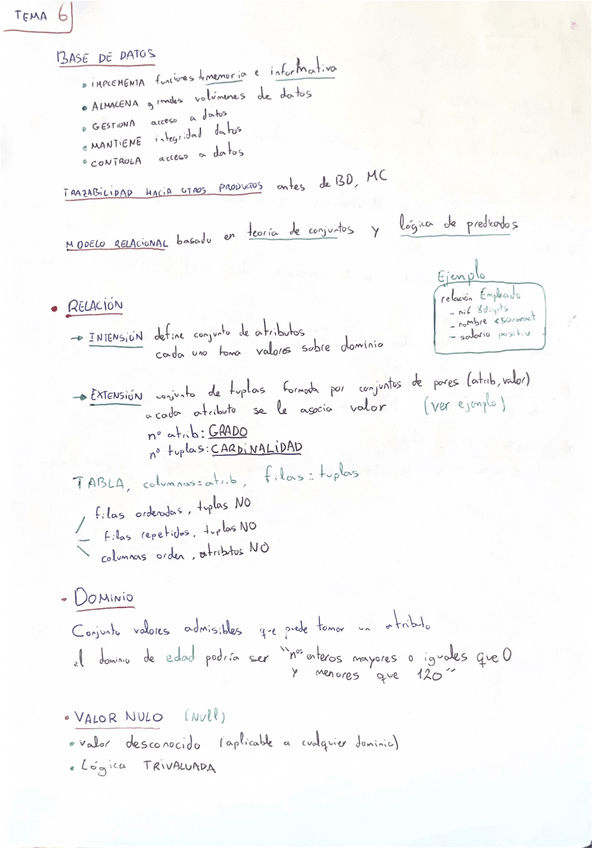 TEMA 6
BASE DE DATOS
• IMPLEMENTA funciones memoria e informativa
• ALMACENA grandes volúmenes de datos
• GESTIONA acceso a datos
• MANTIENE integridad datos
• CONTROLA acceso a datos
TRAZABILIDAD HACIA OTROS PRODUCTOS antes de BD, MC
MODELO RELACIONAL basado en teoría de conjuntos y lógica de predicados
Ejemplo
relación Empleado
- nif 8digits
- nombre <50caract
- salario positiv
• RELACIÓN
→ INTENSIÓN define conjunto de atributos
cada uno toma valores sobre dominio
→ EXTENSIÓN conjunto de tuplas formada por conjuntos de pares (atrib, valor)
a cada atributo se le asocia valor (ver ejemplo)
nº atrib: GRADO
nº tuplas: CARDINALIDAD
TABLA, columnas=atrib, filas=tuplas
filas ordenadas, tuplas NO
filas repetidas, tuplas NO
columnas orden, atributos NO
• DOMINIO
Conjunto valores admisibles que puede tomar un atributo
el dominio de edad podría ser "nos enteros mayores o iguales que 0
y menores que 120"
• VALOR NULO (Null)
• valor desconocido (aplicable a cualquier dominio)
• Lógica TRIVALUADA